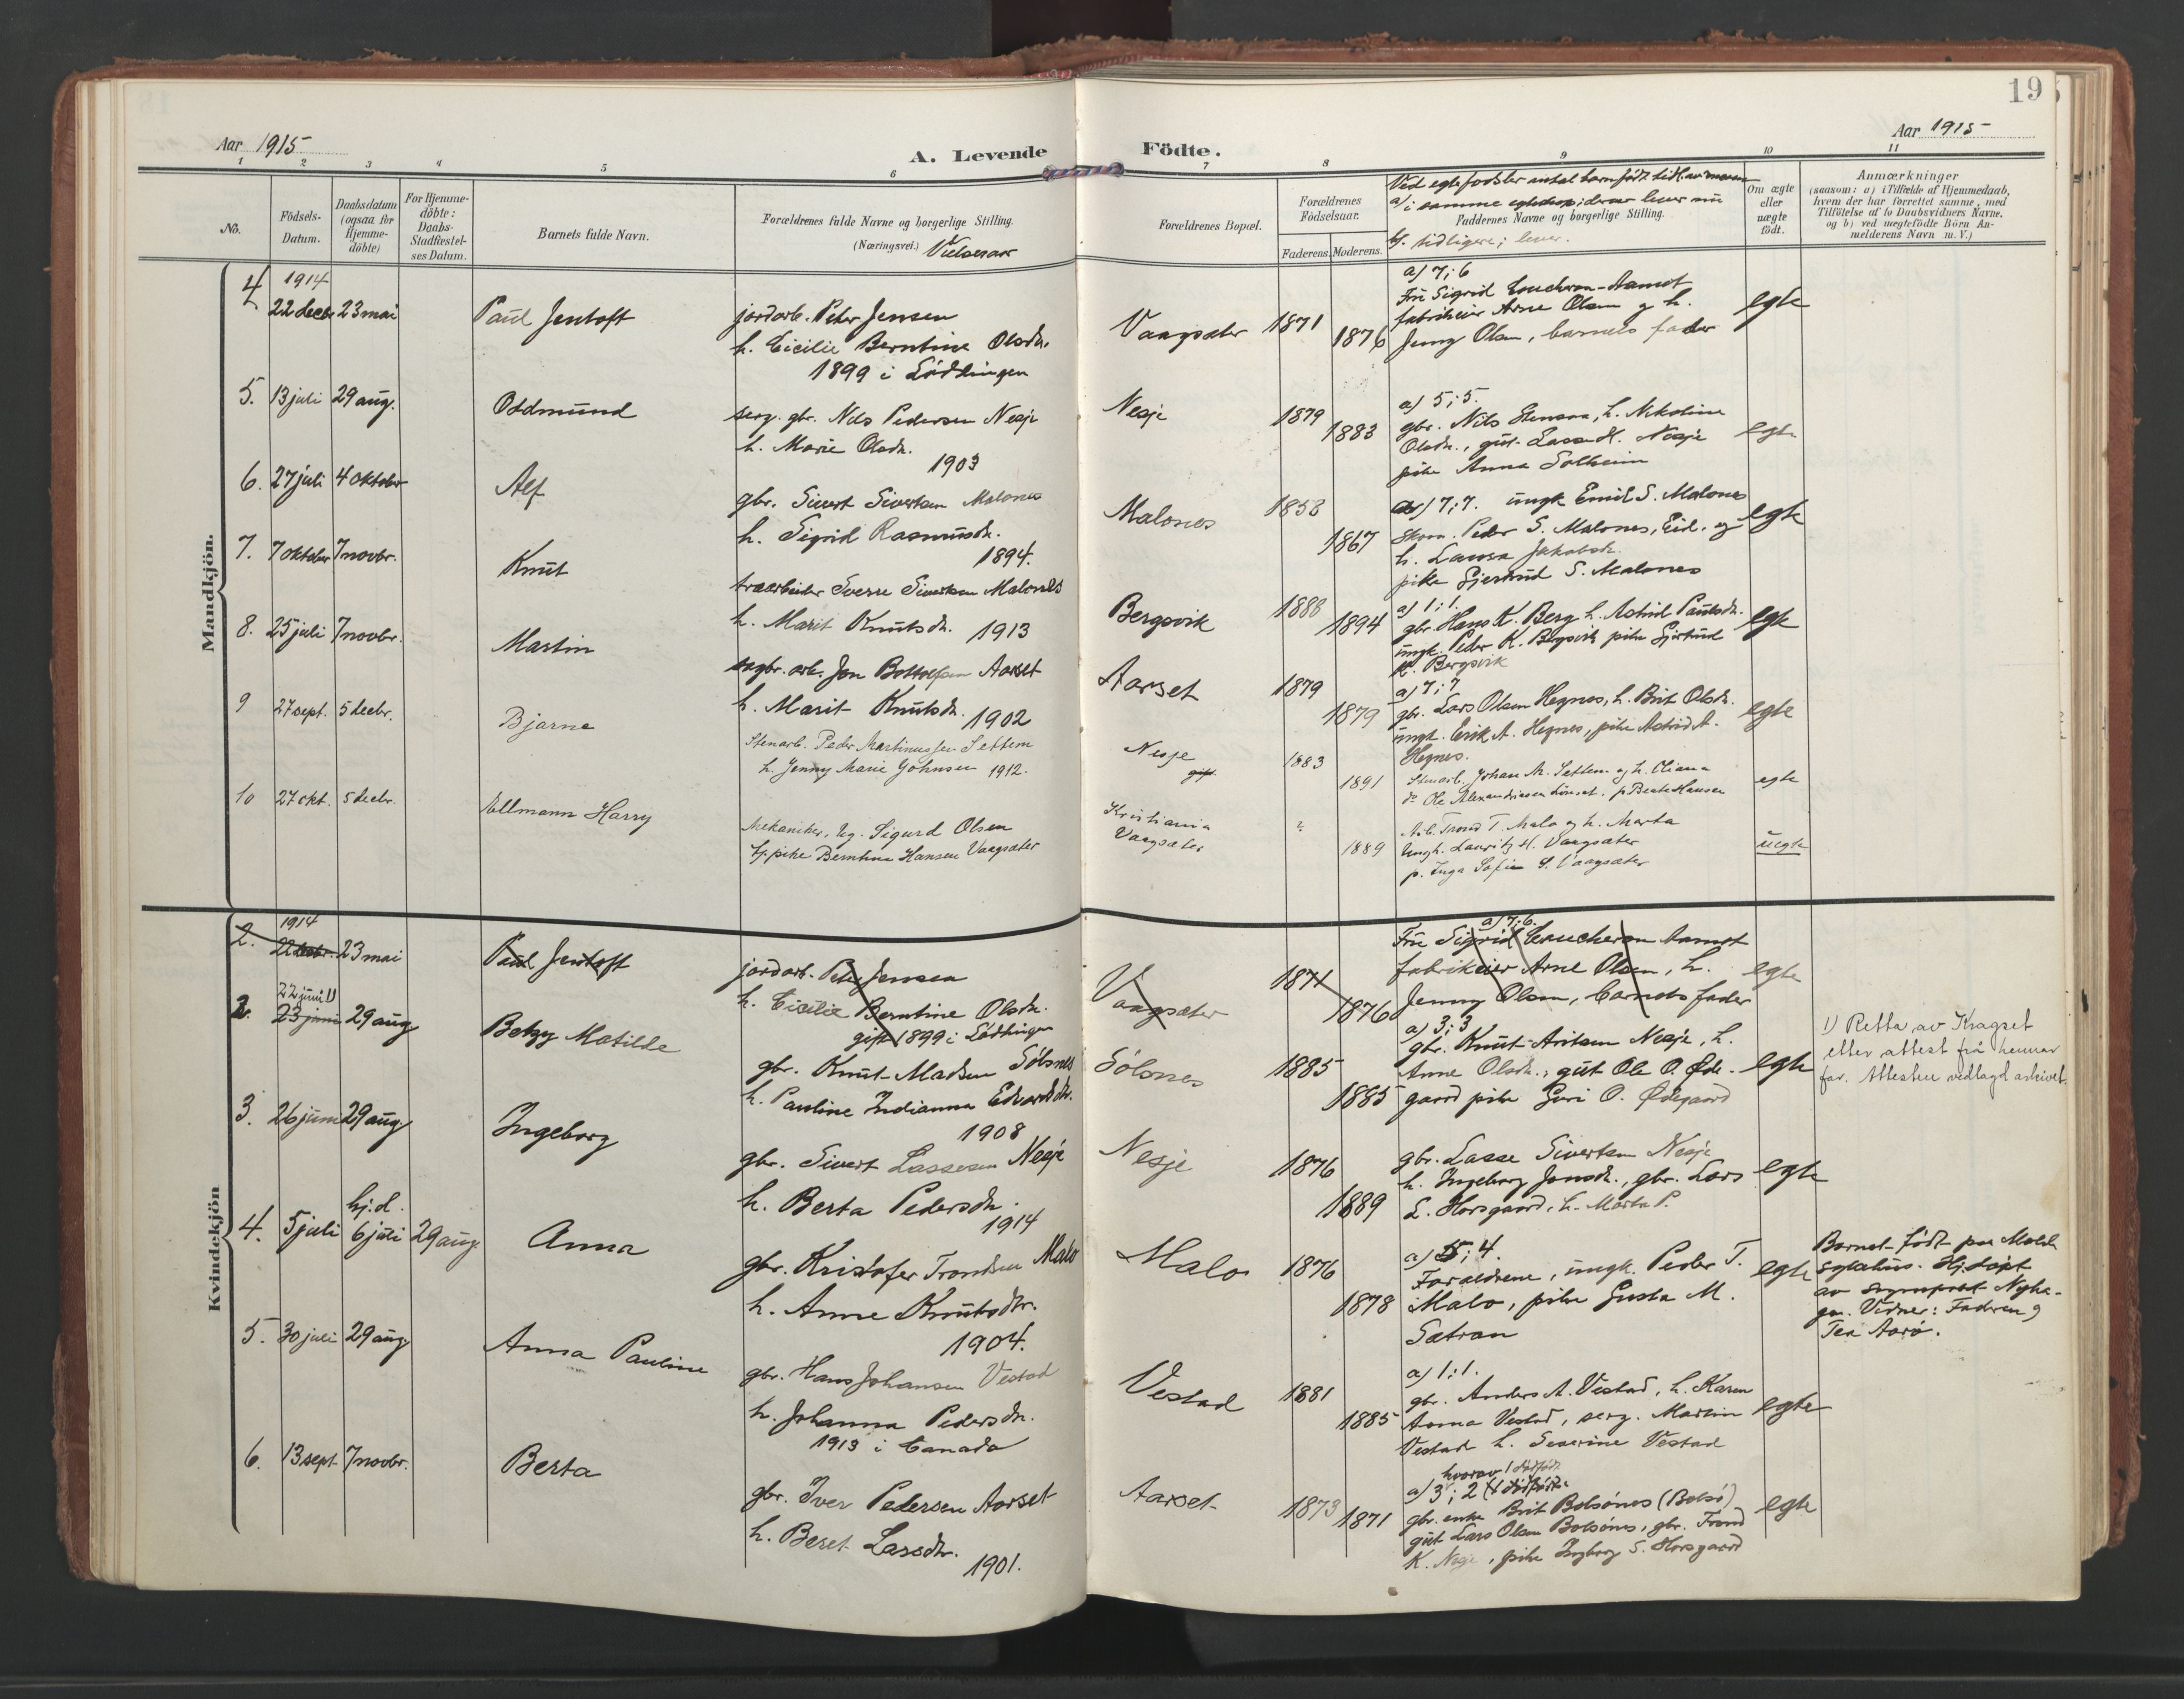 19
Aar 1915
A. Levende
Födte.
Aar 1915
1 2 3 4 5 6 7 8 9 10 11
No.
Födsels-
Datum.
Daabsdatum
(ogsaa for
Hjemme-
döbte)
For Hjemme-
döbte:
Daabs-
Stadfæstel-
ses Datum.
Barnets fulde Navn.
Forældrenes fulde Navne og borgerlige Stilling.
(Næringsvei.)
Vielsesaar
Forældrenes Bopæl.
Forældrenes
Födselsaar.
Faderens. Moderens.
Ved egte fødsler antal barn født tidl. av moren
a) i samme egteskap; derav lever nu
Faddernes Navne og borgerlige Stilling.
b). tidligere; lever.
Om ægte
eller
uægte
födt.
Anmærkninger
(saasom: a) i Tilfælde af Hjemmedaab,
hvem der har forrettet samme, med
Tilföielse af to Daabsvidners Navne.
og b) ved uægtefödte Börn An-
melderens Navn m. V.)
Mandkjön.
4 1914
22 decbr 23 mai Paul Jentoft jordarb. Peter Jensen
h. Cicilie Berntine Olsdr.
1899 i Lödingen
Vaagsæter 1871 1876
a) 7; 6
Fru Sigrid Coucheron-Aamot
fabrikeier Arne Olsen og h.
Jenny Olsen, barnets fader
egte
5. 13 juli 29 aug. Oddmund serg. gbr. Nils Pedersen Nesje
h. Marie Olsdr.
1903
Nesje 1879 1883
a) 5; 5.
gbr. Nils Stensen, h. Nikoline
Olsdr., gut Lasse H. Nesje
pike Anna Solheim
egte
6. 27 juli 4 oktober Alf gbr. Sivert Sivertsen Malones
h. Sigrid Rasmusdr.
1894.
Malones 1858 1867
a) 7; 7. ungk. Emil S. Malones
Skom. Peder S. Malones, Eid, og
h. Laura Jakobsdr.
pike Gjertrud S. Malones
egte
7. 7 oktober 7 novbr. Knut træarbeider Sverre Sivertsen Malones
h. Marit Knutsdr. 1913
Bergsvik 1888 1894
a) 1; 1.
gbr. Hans K. Berg h. Astrid Paulsdr.
ungk. Peder K. Bergsvik pike Gjertrud
K. Bergsvik
egte
8. 25 juli 7 novbr. Martin sagbr. arb. Jon Bottolfsen Aarset
h. Marit Knutsdr. 1902
Aarset 1879 1879
a) 7; 7
gbr. Lars Olsen Hegnes, h. Brit Olsdr.
ungk. Erik A. Hegnes, pike Astrid A.
Hegnes.
egte
9 27 sept. 5 decbr. Bjarne Stenarb. Peder Martinussen Settem
h. Jenny Marie Johnsen 1912.
Nesje
gift.
1883 1891
Stenarb. Johan M. Settem og h. Oliana
do Ole Alexandersen Lönset. p. Beate Hansen
egte
10 27 okt. 5 decbr. Ellmann Harry Mekaniker, Ug. Sigurd Olsen
Tj. pike Berntine Hansen Vaagsæter
Kristiania
Vaagsæter
? 1889
Arb. Trond T. Malo og h. Marta
Ungk. Lauritz H. Vaagsæter
p. Inga Sofie S. Vaagsæter
uegte
Kvindekjön
2. 1914
22 decbr. 23 mai Paul Jentoft jordarb. Peter Jensen
h. Cicilie Berntine Olsdr.
gift 1899 i Lödingen
Vaagsæter 1871 1876
a) 7; 6.
Fru Sigrid Coucheron Aamot
fabrikeier Arne Olsen, h.
Jenny Olsen, barnets fader
egte
2. 22 juni 1)
23 juni 29 aug. Betzy Matilde gbr. Knut Madsen Sölsnes
h. Pauline Indianna Edvardsdr.
1908
Sölsnes 1885 1885
a) 3; 3
gbr. Knut Aritsen Nesje, h.
Anne Olsdr., gut Ole O. Øde-
gaard pike Guri O. Ødegaard
egte
1) Retta av Kragset
etter attest frå hennar
far. Attesten vedlagd arkivet.
3. 26 juni 29 aug. Ingeborg gbr. Sivert Lassesen Nesje
h. Berta Pedersdr.
1914
Nesje 1876 1889
gbr. Lasse Sivertsen Nesje
h. Ingeborg Jonsdr., gbr. Lars
L. Horsgaard, h. Marta P.
egte
4. 5 juli hj.d.
6 juli 29 aug. Anna gbr. Kristofer Trondsen Malo
h. Anne Knutsdtr.
1904.
Malo 1876 1878
a) 5; 4.
Forældrene, ungk. Peder T.
Malo, pike Gusta M.
Sætran
egte
Barnet født paa Molde
sykehus. Hj.døpt
av sogneprest Nyha-
gen. Vidner: Faderen og
Tea Aarö.
5. 30 juli 29 aug. Anna Pauline gbr. Hans Johansen Vestad
h. Johanna Pedersdr.
1913 i Canada
Vestad 1881 1885
a) 1; 1.
gbr. Anders A. Vestad, h. Karen
Anna Vestad, serg. Martin
Vestad h. Severine Vestad
egte
6. 13 sept 7 novbr. Berta gbr. Iver Pedersen Aarset
h. Beret Larsdtr.
1901.
Aarset 1873 1871
hvorav 1 dødfødt
a) 3; 2 (1 dödfödt.
gbr. enke Brit Bolsönes (Bolsö)
gut Lars Olsen Bolsönes, gbr. Trond
K. Nesje, pike Ingborg S. Horsgaard
egte